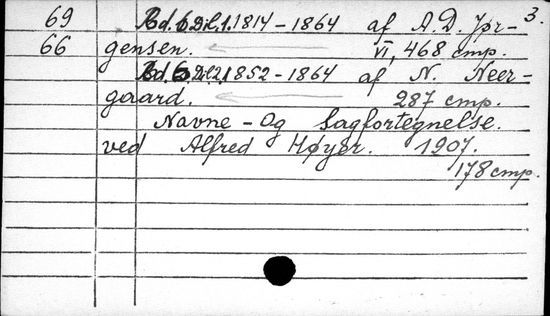 3.
69 Bd. 6 Dil. 1. 1814-1864 af A. D. Jør-
66 gensen. VI, 468 cmp.
Bd. 6 Dil. 2. 1852-1864 af N. Neer-
gaard. 287 cmp.
Navne-Og Sagfortegnelse.
ved Alfred Høyer. 1907.
178 cmp.